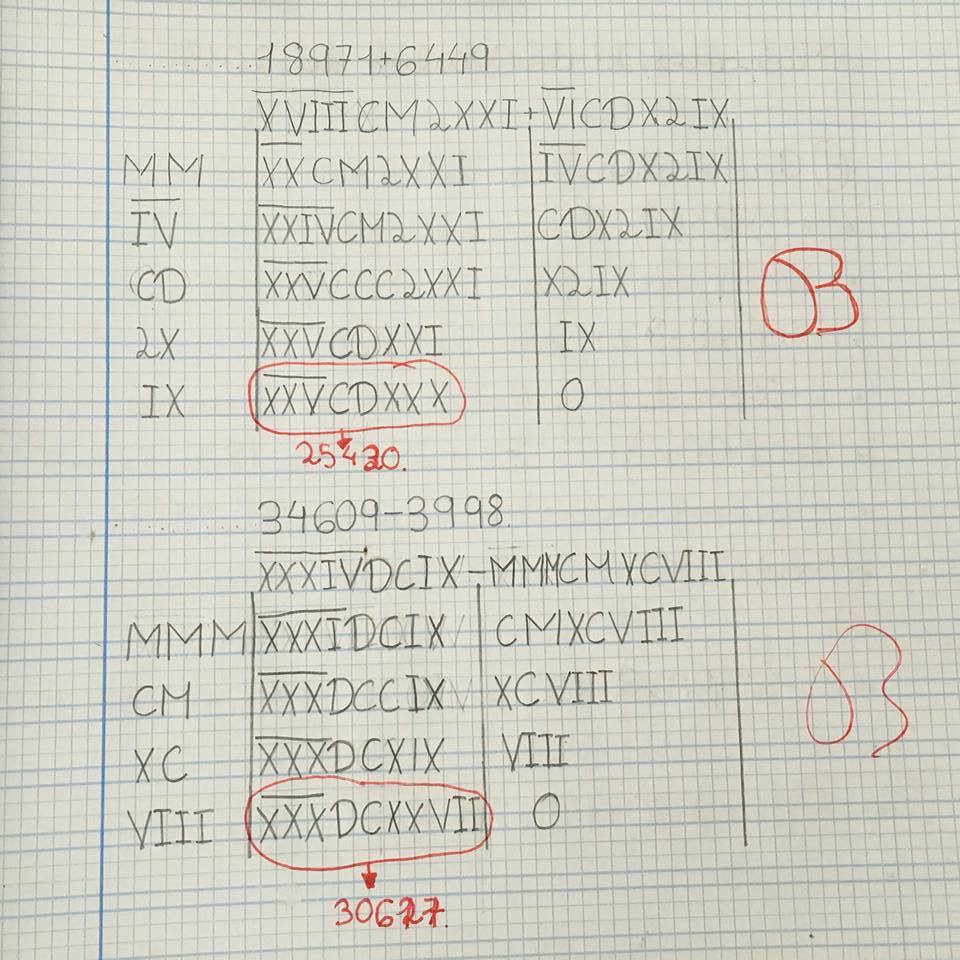 18971+6449
XVIIICMLXXI+VICDXLIX
MM XXCMLXXI IVCDXLIX
IV XXIVCMLXXI CDXLIX
CD XXVCCCLXXI XLIX
LX XXVCDXXI IX
IX XXVCDXXX 0
34609-3998
XXXIVDCIX-MMMCMXCVIII
MMM XXXIDCIX CMXCVIII
CM XXXDCCIX XCVIII
XC XXXDCXIX VIII
VIII XXXDCXXVII 0